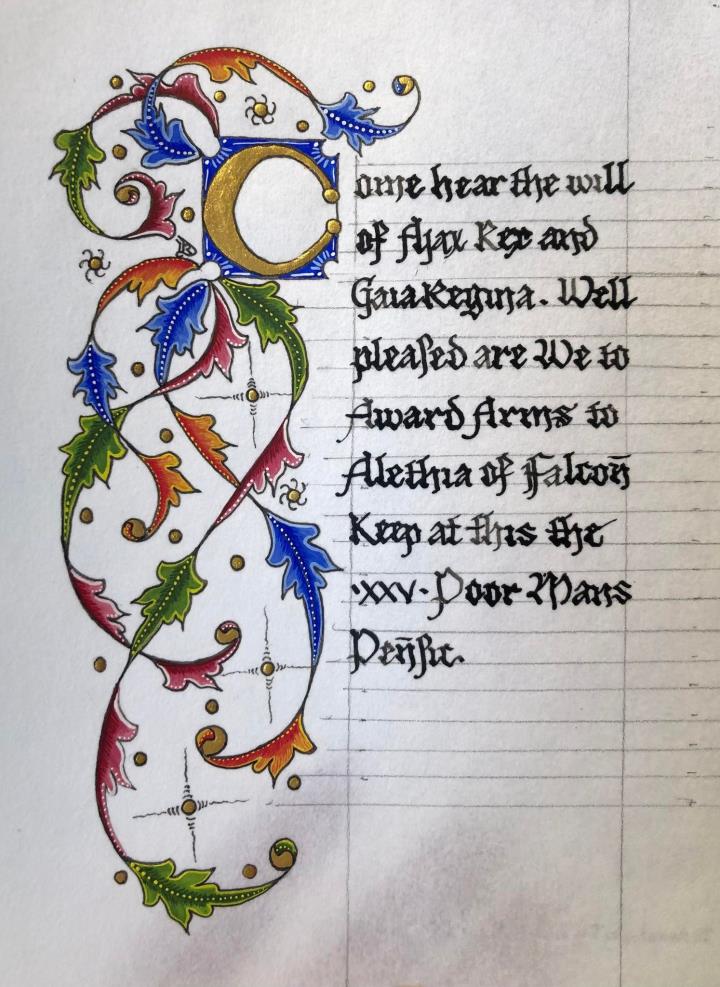 Come hear the will
of Ajax Rex and
Gaia Regina. Well
pleaſed are We to
Award Arms to
Alethia of Falcon̄
Keep at this the
·xxv· Poor Mans
Pen̄ſic.